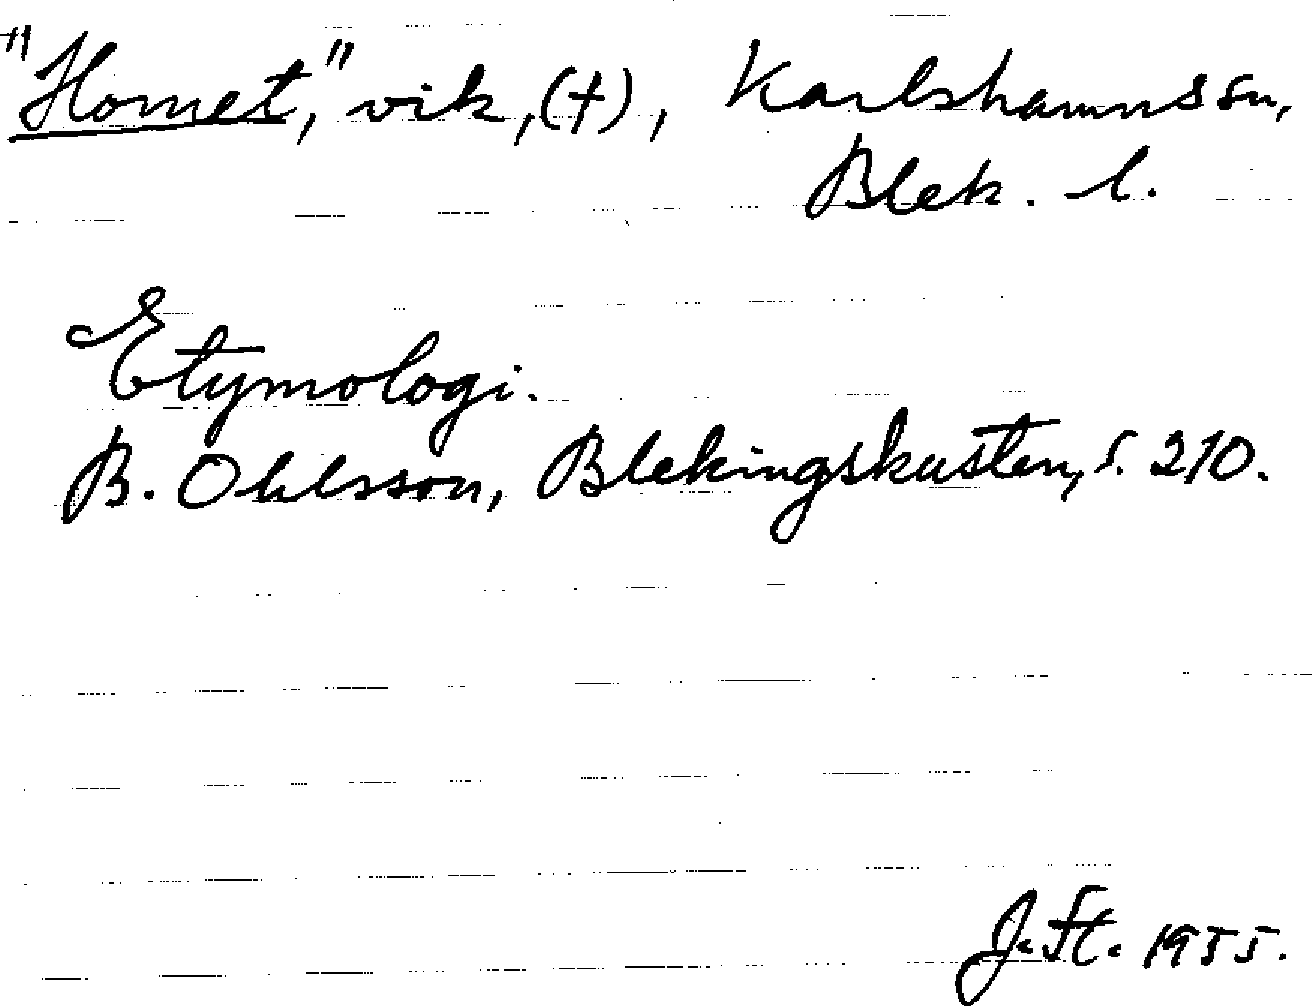 "Hornet," vik, (†), Karlshamns sn,
Blek. l.
Etymologi.
B. Ohlsson, Blekingskusten, s. 210.
J. St. 1955.